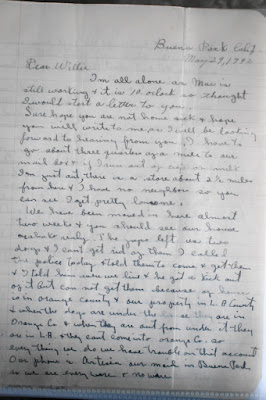 Buena Park Calif
May 29, 1942
Dear Willie
I'm all alone as Mac is
still working & it is 10 oclock so thought
I would start a letter to you.
Sure hope you are not home sick & hope
you will write to me as I will be looking
forward to hearing from you, I have to
go about three quarters of a mile to our
mail box & if I miss out go a mile
I'm just at, there is a store about 2 ½ miles
from here & I have no neighbors so you
can see I get pretty lonesome.
We have been moved in here almost
two weeks & you should see our house
makes to
dogs & I can't get rid of them I called
the police today & told them to come & get them
& I told him where we live & he got a kick out
of it But can not get them because
is in orange county & our property in L A County
& when the dogs are under the house they are in
Orange Co & when they are out from under it they
are in L.A. & they cant come into orange Co. so
everything we do we have trouble on that account
Our phone is Artesia our mail in Buena Park
so we are every where & no where